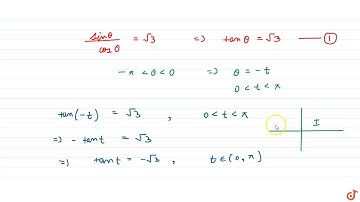 sinθ/cosθ = √3 => tanθ = √3 —— ①
-π < θ < 0 => θ = -t
0 < t < π
tan(-t) = √3 , 0 < t < π
=> - tan t = √3
=> tan t = -√3 , t ∈ (0, π)
I